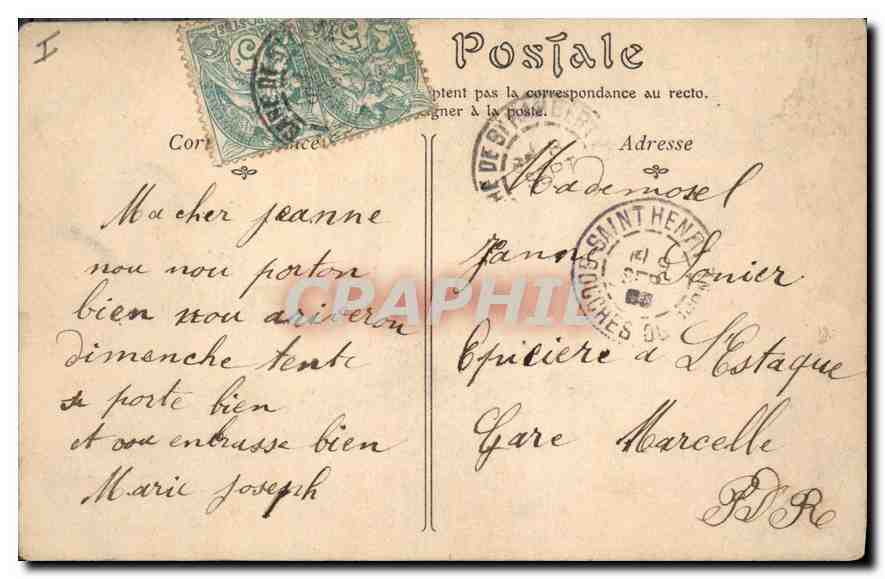 I
Postale
ptent pas la correspondance au recto.
gner à la poste.
Adresse
Ma cher Jeanne
nou nou porton
bien nou ariveron
dimanche tente
se porte bien
et vou enbrasse bien
Marie Joseph
Mademosel
Janne Sonier
Epiciere a L'Estaque
Gare Marcelle
BDR
GARE DE
SAINT HENRI
BOUCHES DU
CRAPHIL